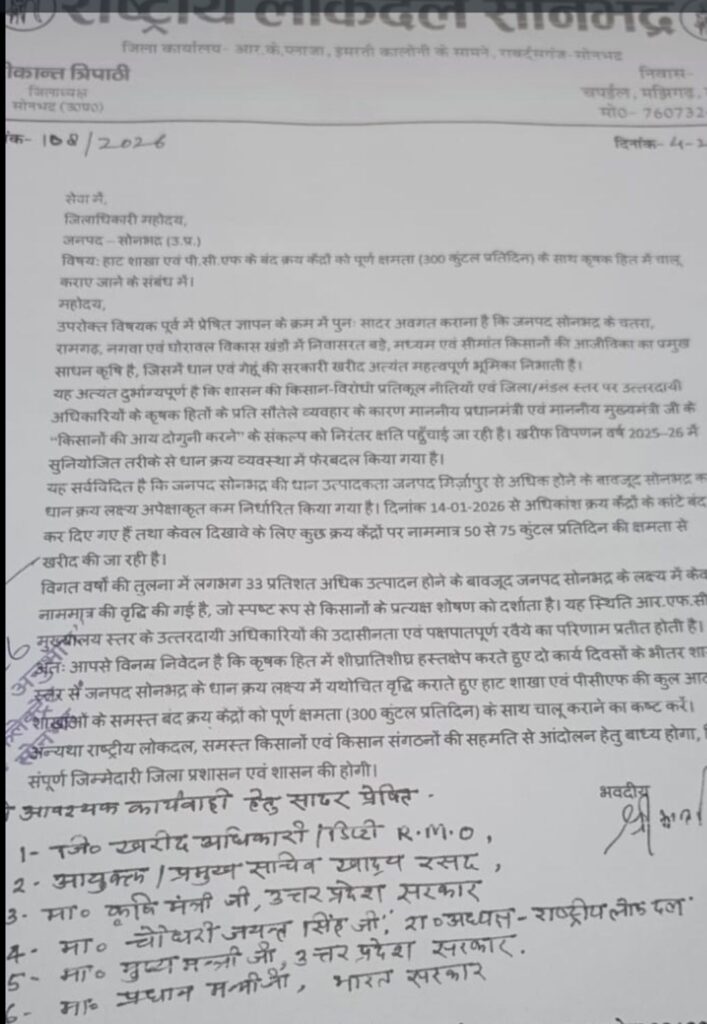 राष्ट्रीय लोकदल सोनभद्र
जिला कार्यालय- आर.के.प्लाजा, इमरती कालोनी के सामने, राबर्ट्सगंज-सोनभद्र
कान्त त्रिपाठी
जिलाध्यक्ष
सोनभद्र (उ०प्र०)
निवास-
चपईल, मझिगढ़,
मो०- 760732
क- 108/2026
दिनांक- 4-2
सेवा में,
जिलाधिकारी महोदय,
जनपद – सोनभद्र (उ.प्र.)
विषय: हाट शाखा एवं पी.सी.एफ के बंद क्रय केंद्रों को पूर्ण क्षमता (300 कुंटल प्रतिदिन) के साथ कृषक हित में चालू
कराए जाने के संबंध में।
महोदय,
उपरोक्त विषयक पूर्व में प्रेषित ज्ञापन के क्रम में पुनः सादर अवगत कराना है कि जनपद सोनभद्र के चतरा,
रामगढ़, नगवा एवं घोरावल विकास खंडों में निवासरत बड़े, मध्यम एवं सीमांत किसानों की आजीविका का प्रमुख
साधन कृषि है, जिसमें धान एवं गेहूं की सरकारी खरीद अत्यंत महत्वपूर्ण भूमिका निभाती है।
यह अत्यत दुर्भाग्यपूर्ण है कि शासन की किसान-विरोधी प्रतिकूल नीतियों एवं जिला/मंडल स्तर पर उत्तरदायी
अधिकारियों के कृषक हितों के प्रति सौतेले व्यवहार के कारण माननीय प्रधानमंत्री एवं माननीय मुख्यमंत्री जी के
"किसानों की आय दोगुनी करने" के संकल्प को निरंतर क्षति पहुँचाई जा रही है। खरीफ विपणन वर्ष 2025–26 में
सुनियोजित तरीके से धान क्रय व्यवस्था में फेरबदल किया गया है।
यह सर्वविदित है कि जनपद सोनभद्र की धान उत्पादकता जनपद मिर्ज़ापुर से अधिक होने के बावजूद सोनभद्र का
धान क्रय लक्ष्य अपेक्षाकृत कम निर्धारित किया गया है। दिनांक 14-01-2026 से अधिकांश क्रय केंद्रों के कांटे बंद
कर दिए गए हैं तथा केवल दिखावे के लिए कुछ क्रय केंद्रों पर नाममात्र 50 से 75 कुंटल प्रतिदिन की क्षमता से
खरीद की जा रही है।
विगत वर्षों की तुलना में लगभग 33 प्रतिशत अधिक उत्पादन होने के बावजूद जनपद सोनभद्र के लक्ष्य में केव
नाममात्र की वृद्धि की गई है, जो स्पष्ट रूप से किसानों के प्रत्यक्ष शोषण को दर्शाता है। यह स्थिति आर.एफ.सी
मुख्यालय स्तर के उत्तरदायी अधिकारियों की उदासीनता एवं पक्षपातपूर्ण रवैये का परिणाम प्रतीत होती है।
अतः आपसे विनम्र निवेदन है कि कृषक हित में शीघ्रातिशीघ्र हस्तक्षेप करते हुए दो कार्य दिवसों के भीतर शा
स्तर से जनपद सोनभद्र के धान क्रय लक्ष्य में यथोचित वृद्धि कराते हुए हाट शाखा एवं पीसीएफ की कुल आठ
शाखाओं के समस्त बंद क्रय केंद्रों को पूर्ण क्षमता (300 कुंटल प्रतिदिन) के साथ चालू कराने का कष्ट करें।
अन्यथा राष्ट्रीय लोकदल, समस्त किसानों एवं किसान संगठनों की सहमति से आंदोलन हेतु बाध्य होगा,
संपूर्ण जिम्मेदारी जिला प्रशासन एवं शासन की होगी।
भवदीय
आवश्यक कार्यवाही हेतु सादर प्रेषित -
1- जि० खरीद अधिकारी/डिप्टी R.M.O,
2- आयुक्त/प्रमुख सचिव खाद्य रसद,
3- मा० कृषि मंत्री जी, उत्तर प्रदेश सरकार
4- मा० चौधरी जयन्त सिंह जी, रा० अध्यक्ष- राष्ट्रीय लोकदल
5- मा० मुख्य मन्त्री जी, उत्तर प्रदेश सरकार.
6- मा० प्रधान मन्त्री जी, भारत सरकार